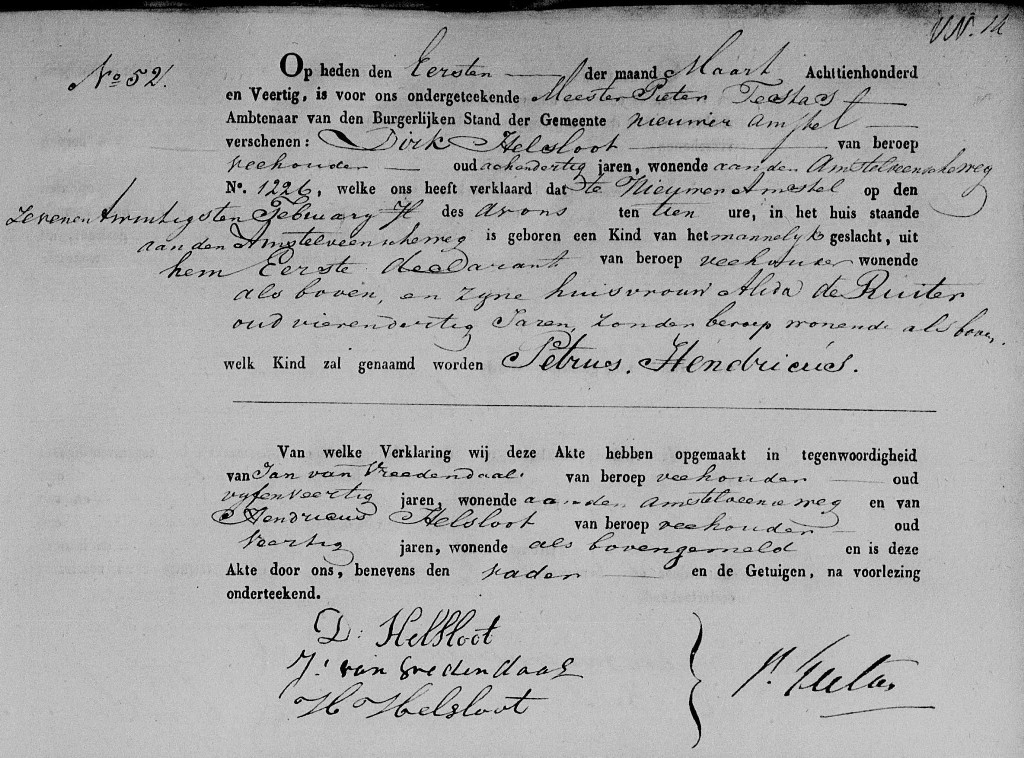 VN. 14
No 52.
Op heden den Eersten der maand Maart Achttienhonderd
en Veertig, is voor ons ondergeteekende Meester Pieter Testas
Ambtenaar van den Burgerlijken Stand der Gemeente nieuwer amstel
verschenen: Dirk Helsloot van beroep
veehouder oud achendertig jaren, wonende aan den Amstelveenscheweg
No. 1226, welke ons heeft verklaard dat te Nieuwer Amstel op den
zevenentwintigsten February Jl des avons ten tien ure, in het huis staande
aan den Amstelveenscheweg is geboren een Kind van het mannelyk geslacht, uit
hem Eerste declarant van beroep veehouder wonende
als boven, en zyne huisvrouw Alida de Ruiter
oud vierendertig Jaren, zonder beroep wonende als boven,
welk Kind zal genaamd worden Petrus, Hendricus.
Van welke Verklaring wij deze Akte hebben opgemaakt in tegenwoordigheid
van Jan van Vreedendaal van beroep veehouder oud
vyfenveertig jaren, wonende aan den amstelveense weg en van
Hendricus Helsloot van beroep veehouder oud
Veertig jaren, wonende als bovengemeld en is deze
Akte door ons, benevens den vader en de Getuigen, na voorlezing
onderteekend.
D. Helsloot
J. van Vredendaal
H Helsloot
P. Testas